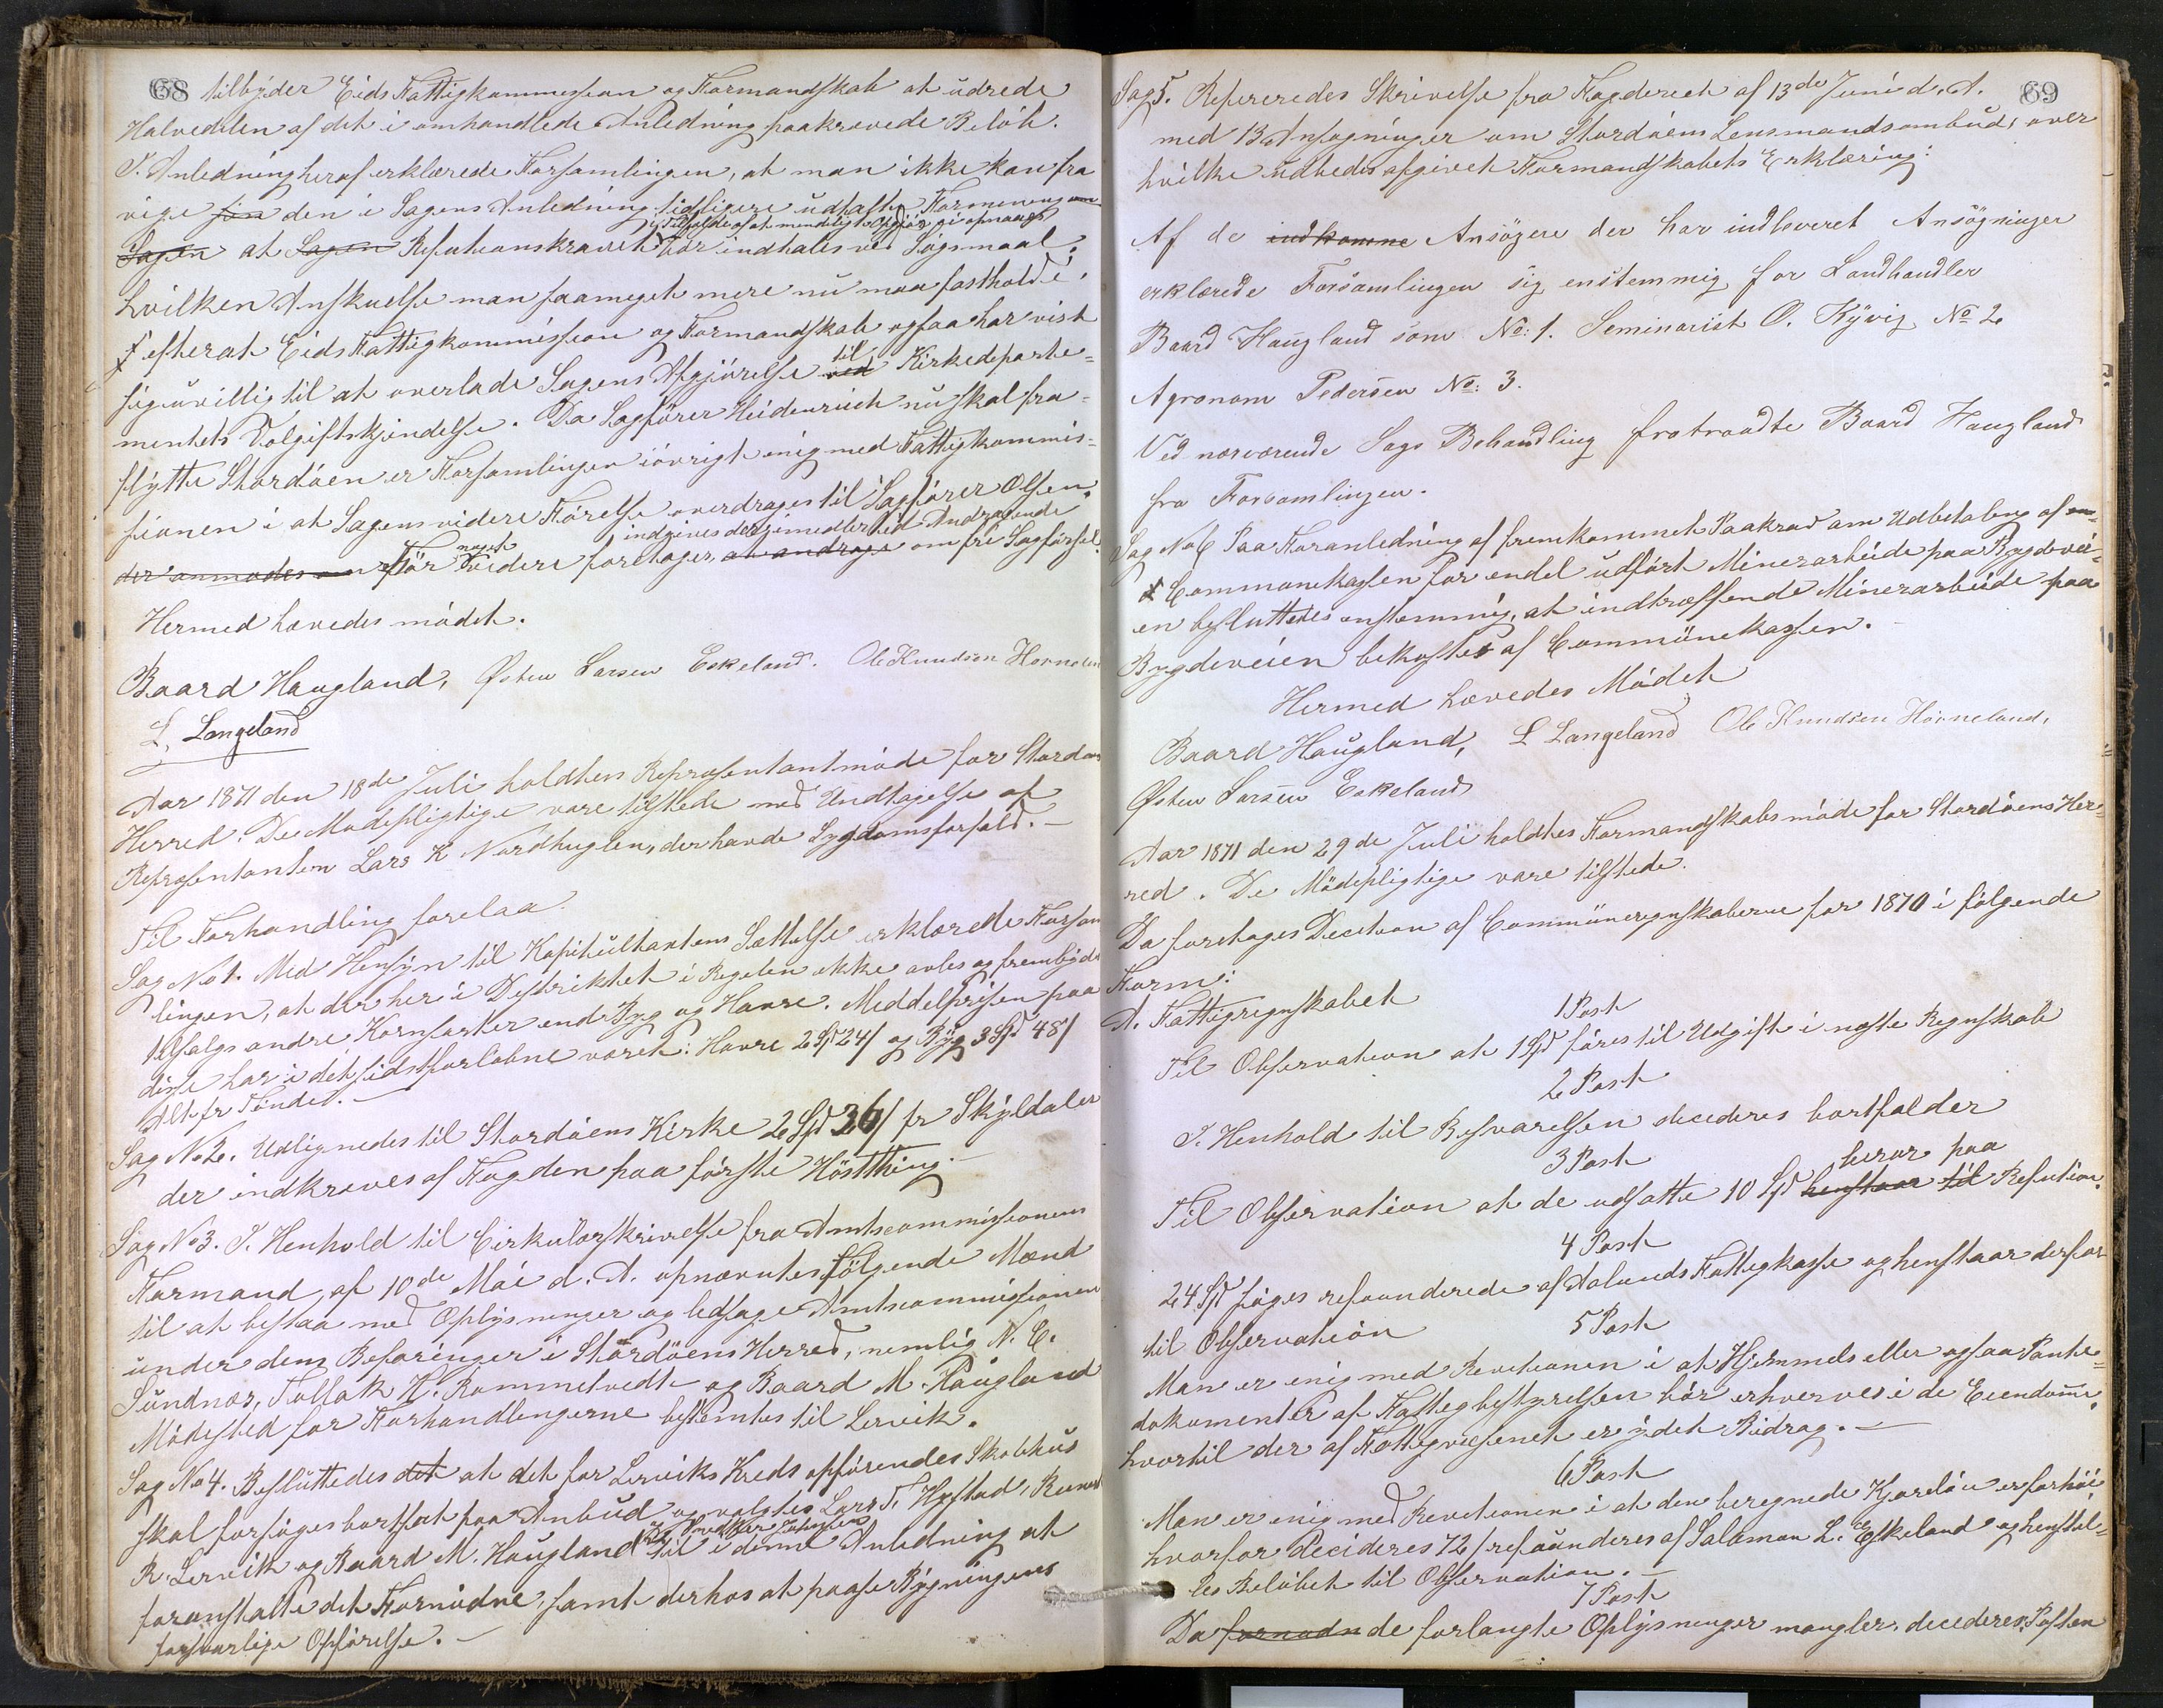 68 tilbyder Eids Fattigkommission og Formandskab at udrede
Halvedelen af det i omhandlede Anledning paakrævede Beløb.
I Anledning heraf erklærede Forsamlingen, at man ikke kan fra
vige fra den i Sagens Anledning tidligere udtalte Formening om
i Tilfælde af at mindeligt Opgjør ei opnaaes
Sagen at Sagen Refusionskravet bør indhales ved Sagsmaal.
hvilken Anskuelse man saameget mere nu maa fastholde
efterat Eids Fattigkommission og Formandskab ogsaa har vist
sig uvillig til at overlade Sagens Afgjørelse ved til Kirkedeparte-
mentets Volgiftskjendelse. Da Sagfører Heidenreich nu skal fra-
flytte Stordøen er Forsamlingen iøvrigt enig med Fattigkommis-
sionen i at Sagens videre Førelse overdrages til Sagfører Olsen.
indgives der imidlertid Andragende
der anmodes om Før noget videre foretages, at andrage om fri Sagførsel.
Hermed hævedes mødet.
Baard Haugland, Østen Larsen Eskeland. Ole Knudsen Horneland
L. Langeland
Aar 1871 den 18de Juli holdtes Repræsentantmøde for Stordøens
Herred. De Mødepligtige vare tilstede med Undtagelse af
Repræsentanten Lars K Nordhuglen, der havde Sygdomsforfald. –
Til Forhandling forelaa
Sag No 1. Med Hensyn til Kapitultaxtens Sættelse erklærede Forsam
lingen, at der her i Distriktet i Regelen ikke avles og frembydes
tilsalgs andre Kornsorter end Byg og Havre. Middelprisen paa
disse har i det sidstforløbne været: Havre 2 Spd 24 ß og Byg 3 Spd 48 ß
Alt pr Tønde. –
Sag No 2. Udlignedes til Stordøens Kirke 2 Spd 36 ß pr Skyldaler
der indkræves af Fogden paa første Høstthing. –
Sag No 3. I Henhold til Cirkulærskrivelse fra Amtscommissionens
Formand, af 10de Mai d. A. opnævntes følgende Mænd
til at bistaa med Oplysninger og ledsage Amtscommissionen
under dens Befaringer i Stordøens Herred, nemlig N. E.
Sundnæs, Tollak H. Rommetvedt og Baard M. Haugland
Mødested for Forhandlingerne bestemtes til Lervik.
Sag No 4. Besluttedes det at det for Lerviks Kreds opførendes Skolehus
skal forsøges bortsat paa Anbud og valgtes Lars T. Hystad,
R. Lervik og Baard M. Haugland til i denne Anledning at
foranstalte det Fornødne, samt derhos at paase Bygningens
forsvarlige Opførelse. –
Sag 5. Refereredes Skrivelse fra Fogderiet af 13de Juni d. A. 69
med 13 Ansøgninger om Stordøens Lensmandsombud, over
hvilke udbedes afgivet Formandskabets Erklæring:
Af de indkomne Ansøgere der har indleveret Ansøgninger
erklærede Forsamlingen sig enstemmig for Landhandler
Baard Haugland som No: 1. Seminarist O. Kyvig No 2
Agronom Pedersen No: 3.
Ved nærværende Sags Behandling fratraadte Baard Haugland
fra Forsamlingen.
Sag No 6 Paa Foranledning af fremkommet Paakrav om Udbetaling af
Communekassen for endel udført Minerarbeide paa Bygdevei-
en besluttedes enstemmig, at indtræffende Minerarbeide paa
Bygdeveien bekostes af Communekassen. –
Hermed hævedes Mødet
Baard Haugland, L Langeland Ole Knudsen Horneland,
Østen Larsen Eskeland
Aar 1871 den 29de Juli holdtes Formandskabsmøde for Stordøens Her-
red. De Mødepligtige vare tilstede.
Da foretoges Decision af Communeregnskaberne for 1870 i følgende
Form:
A. Fattigregnskabet
1 Post
Til Observation at 1 Spd føres til Udgift i næste Regnskab
2 Post
I Henhold til Besvarelsen decideres bortfalder
3 Post
beror paa
Til Observation at de udsatte 10 Spd henstaar til Refusion.
4 Post
24 Spd søges refunderede af Aalunds Fattigkasse og henstaar derfor
til Observation
5 Post
Man er enig med Revisionen i at Hjemmels eller ogsaa Pante-
dokumenter af Fattigbestyrelsen bør erhverves i de Eiendomme,
hvortil der af Fattigvæsenet er ydet Bidrag. –
6 Post
Man er enig med Revisionen i at den beregnede Kjøreløn er forhøi
hvorfor decideres 72 ß refunderes af Salamon L. Eskeland og henstil-
les Beløbet til Observation. –
7 Post
Da fornødn de forlangte Oplysninger mangler, decideres Posten